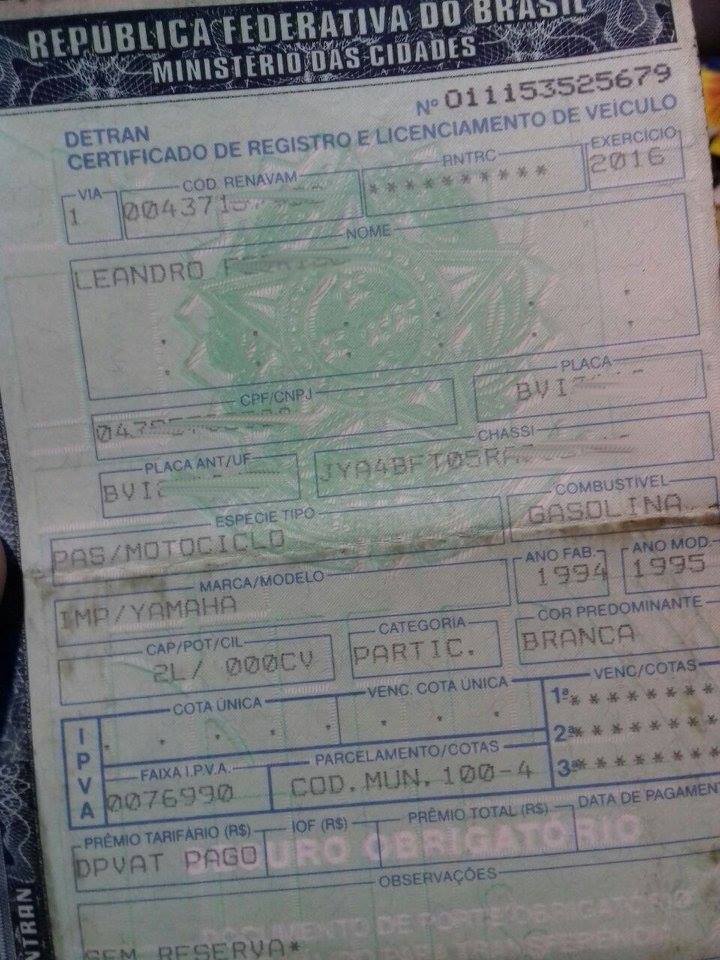 REPÚBLICA FEDERATIVA DO BRASIL
MINISTÉRIO DAS CIDADES
Nº 011153525679
DETRAN
CERTIFICADO DE REGISTRO E LICENCIAMENTO DE VEÍCULO
VIA COD. RENAVAM RNTRC EXERCÍCIO
1 004371 ********** 2016
NOME
LEANDRO
CPF/CNPJ PLACA
BVI
PLACA ANT/UF CHASSI
BVI JYA4BFT05RA
ESPÉCIE TIPO COMBUSTÍVEL
PAS/MOTOCICLO GASOLINA
MARCA/MODELO ANO FAB. ANO MOD.
IMP/YAMAHA 1994 1995
CAP/POT/CIL CATEGORIA COR PREDOMINANTE
2L/ 000CV PARTIC. BRANCA
IPVA
COTA ÚNICA VENC. COTA ÚNICA VENC/COTAS
1ª ********
2ª ********
3ª ********
FAIXA I.P.V.A. PARCELAMENTO/COTAS
0076990 COD.MUN.100-4
PRÊMIO TARIFÁRIO (R$) IOF (R$) PRÊMIO TOTAL (R$) DATA DE PAGAMEN
DPVAT PAGO OBRIGATÓRIO
OBSERVAÇÕES
DOCUMENTO DE PORTE OBRIGATÓRIO
SEM RESERVA*